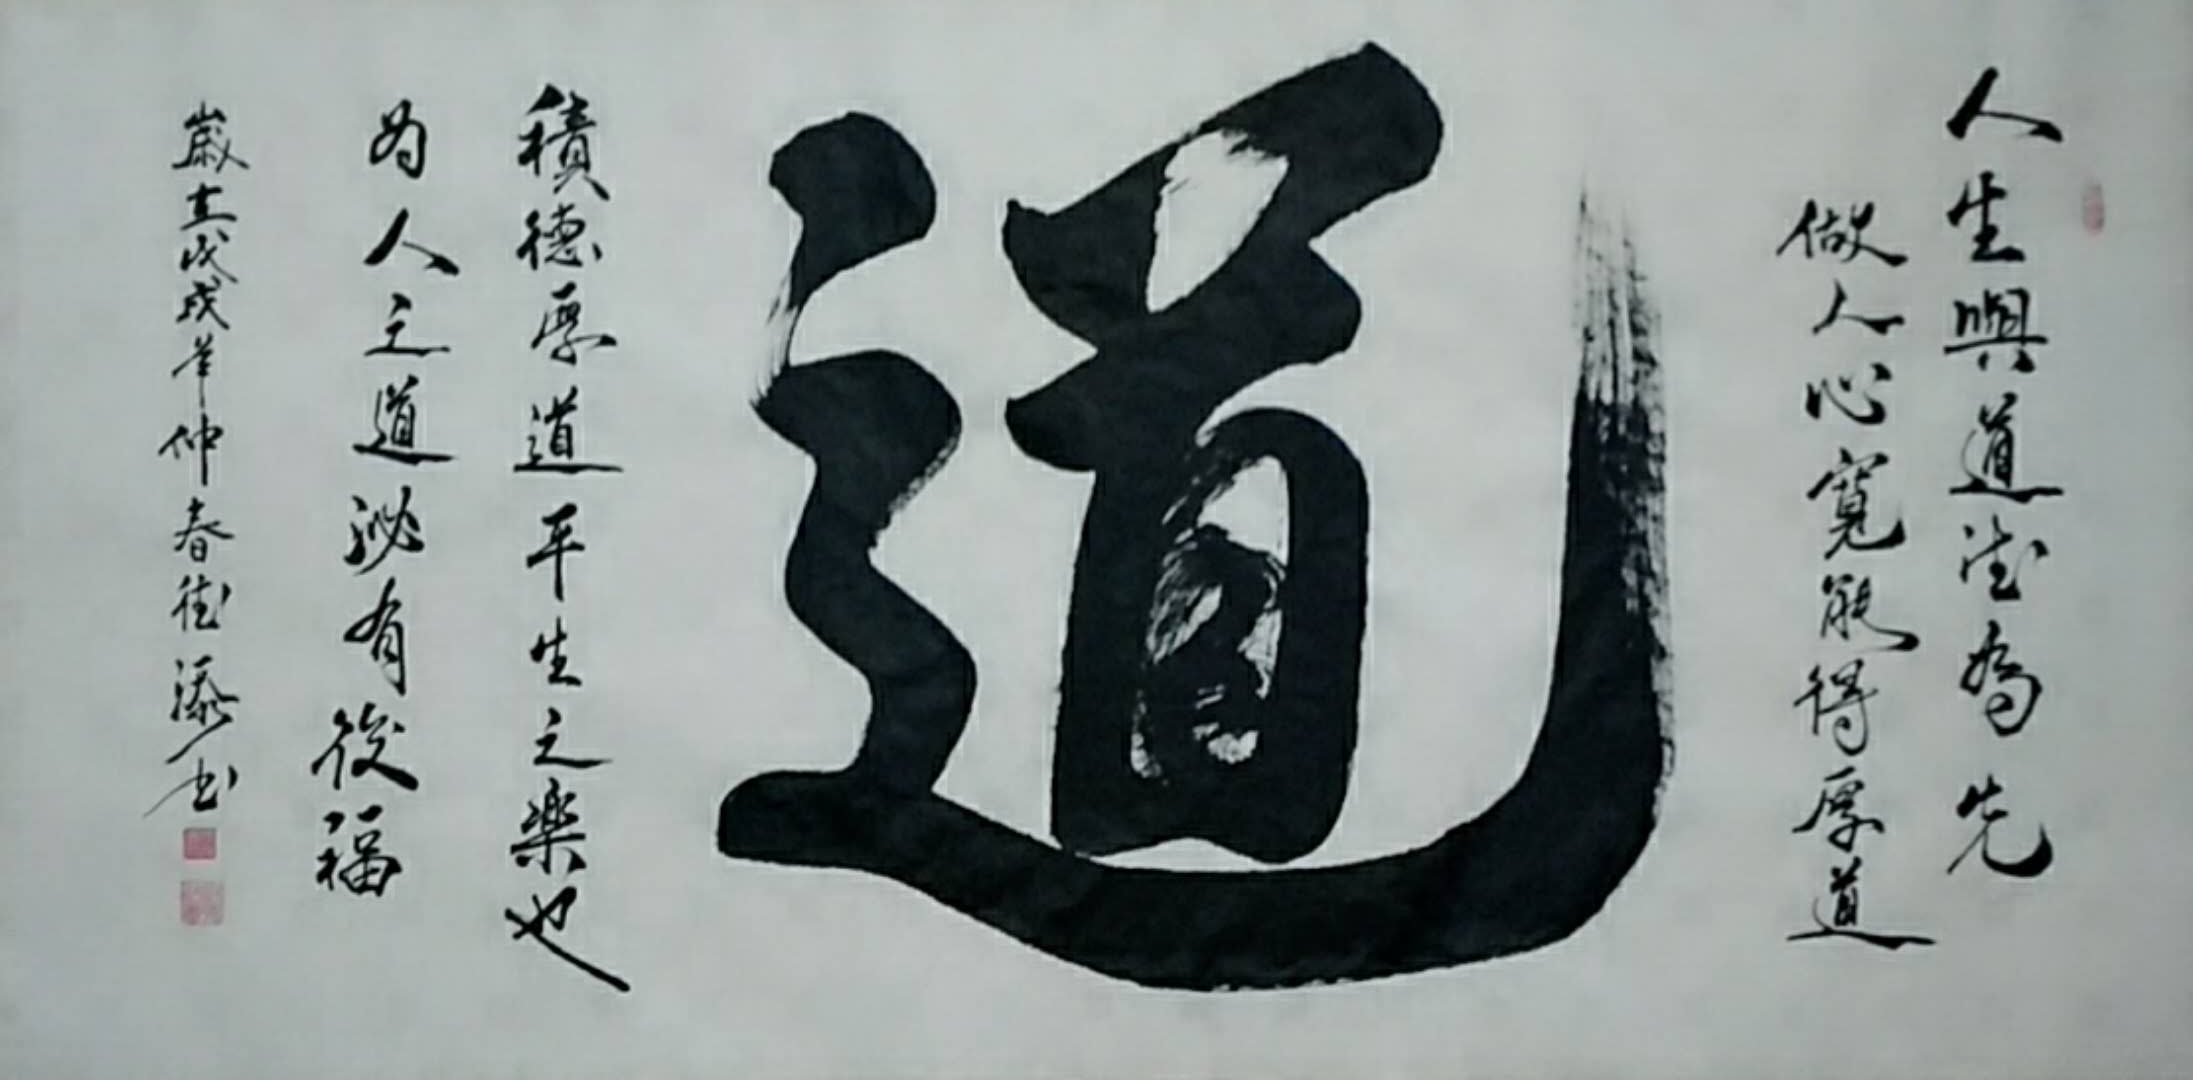 人生與道德為先
做人心寬能得厚道
道
積德厚道平生之樂也
为人之道必有後福
歲在戊戌年仲春德添书